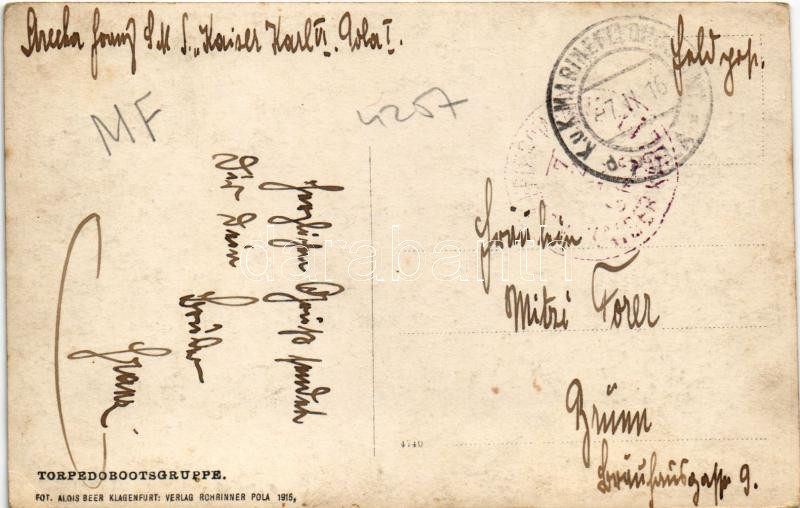 Strecka Franz S.M.S. „Kaiser Karl VI. Pola I.
Feldpost.
MF
4257
K.u.K. MARINEFELDPOSTAMT
7. IX. 16
POLA
KAISER KARL
Herzlichen Gruß sendet
Dir Dein
Bruder
Franz
Fräulein
Mitzi Forer
Brünn
Bräuhausgasse 9.
4740
TORPEDOBOOTSGRUPPE.
FOT. ALOIS BEER KLAGENFURT: VERLAG ROHRINNER POLA 1915,
darabanth